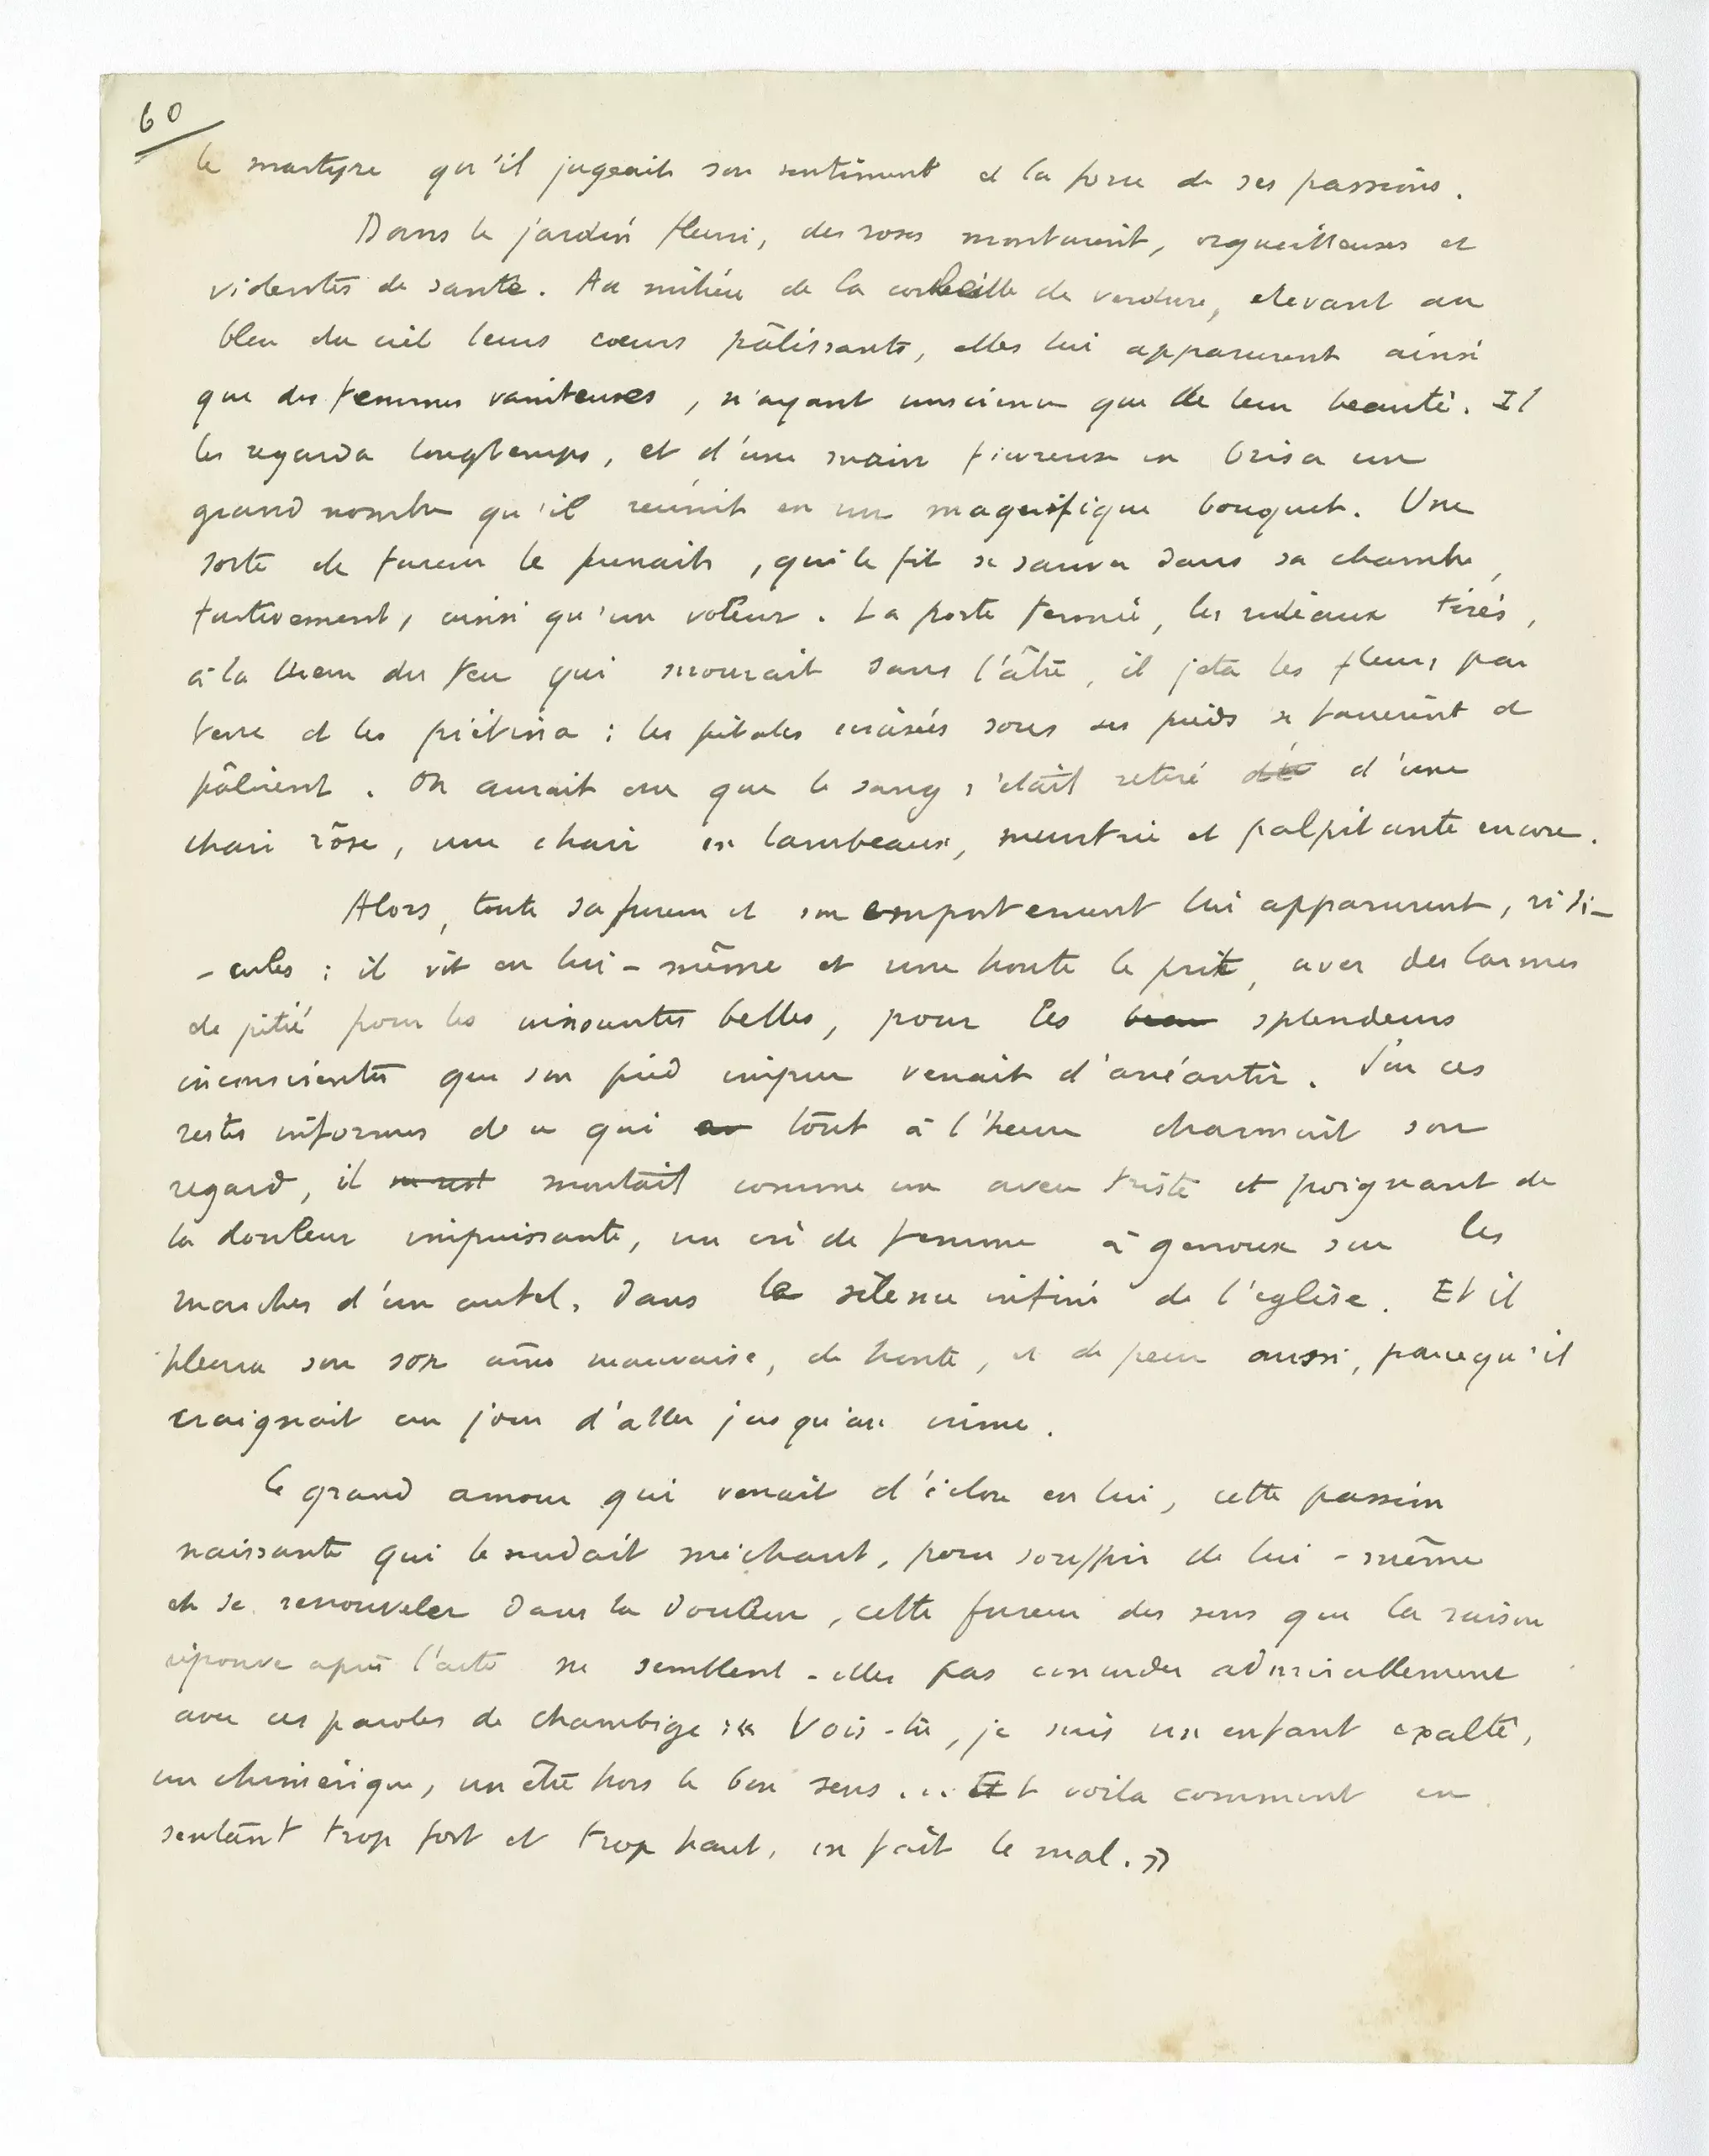 60
le martyre qu'il jugeait son sentiment et la force de ses passions.
Dans le jardin fleuri, des roses montaient, orgueilleuses et
violentes de santé. Au milieu de la corbeille de verdure, elevant au
bleu du ciel leurs coeurs pâlissants, elles lui apparurent ainsi
que des femmes vaniteuses, n'ayant conscience que de leur beauté. Il
les regarda longtemps, et d'une main fievreuse en brisa un
grand nombre qu'il réunit en un magnifique bouquet. Une
sorte de fureur le prenait, qui le fit se sauver dans sa chambre,
furtivement, ainsi qu'un voleur. La porte fermée, les rideaux tirés,
à la lueur du feu qui mourait dans l'âtre, il jeta les fleurs par
terre et les piétina : les pétales écrasés sous ses pieds se fanèrent et
pâlirent. On aurait cru que le sang s'était retiré de d'une
chair rose, une chair en lambeaux, meurtrie et palpitante encore.
Alors, toute sa fureur et son emportement lui apparurent, ridi-
-cules : il vit en lui-même et une honte le prit, avec des larmes
de pitié pour les innocentes belles, pour les beau splendeurs
inconscientes que son pied impur venait d'anéantir. D'où ces
restes informes de ce qui tout à l'heure charmait son
regard, il montait comme un aveu triste et poignant de
la douleur impuissante, un cri de femme à genoux sur les
marches d'un autel, dans le silence infini de l'eglise. Et il
pleura sur son âme mauvaise, de honte, et de peur aussi, parcequ'il
craignait un jour d'aller jusqu'au crime.
Le grand amour qui venait d'éclore en lui, cette passion
naissante qui le rendait méchant, pour souffrir de lui-même
et se renouveler dans la douleur, cette fureur des sens que la raison
réprouve après l'acte ne semblent-elles pas concorder admirablement
avec ces paroles de Chambige : « Vois-tu, je suis un enfant exalté,
un chimérique, un être hors le bon sens... Et voila comment en
sentant trop fort et trop haut, on fait le mal. »